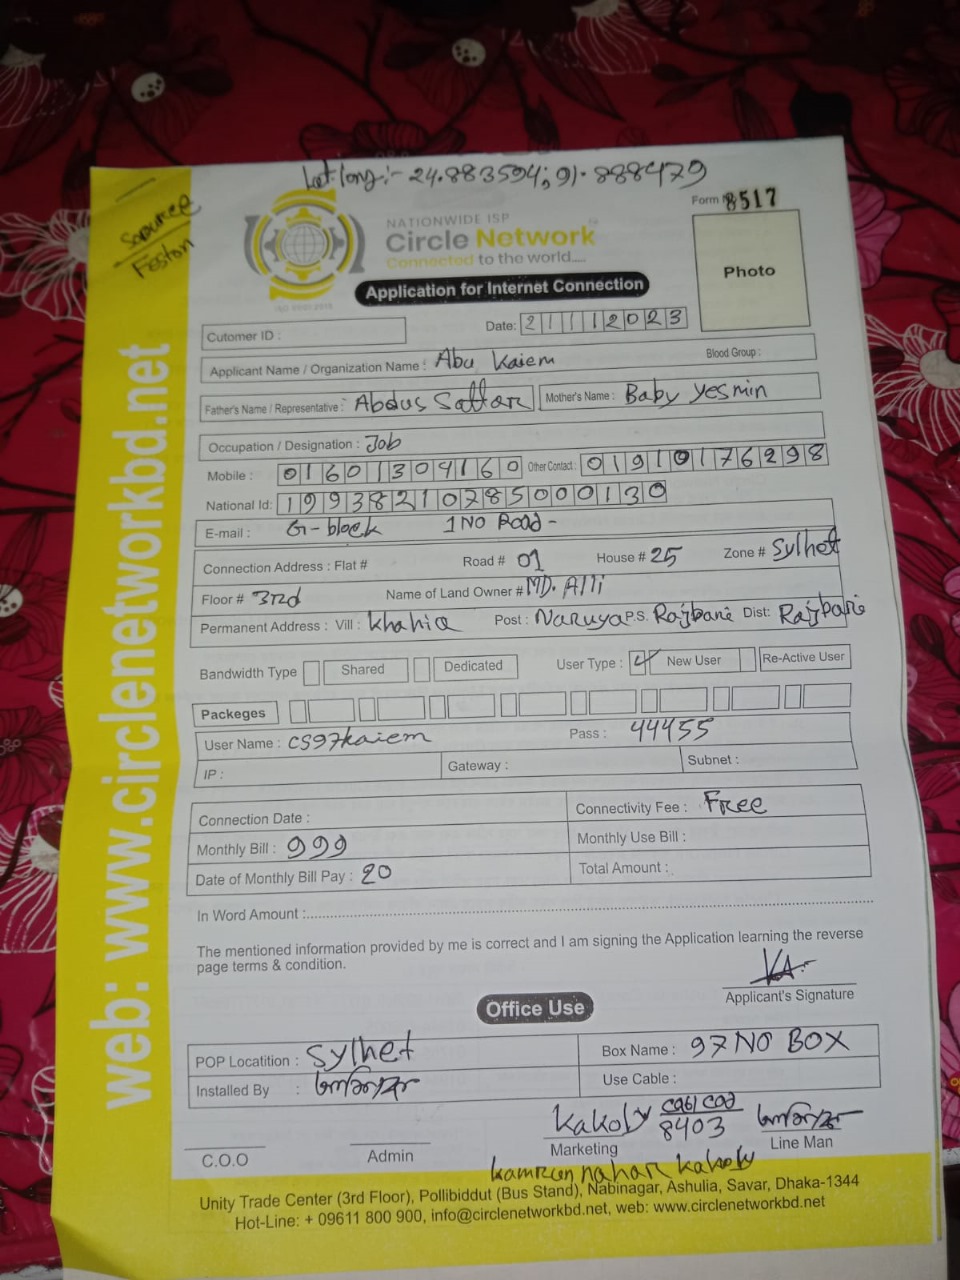 Lat long:- 24.883594; 91.888479
Source
Feston
Form 8517
NATIONWIDE ISP
Circle Network
Connected to the world.....
ISO 9001:2015
Application for Internet Connection
Photo
Cutomer ID :
Date: 21112023
Applicant Name / Organization Name : Abu Kaiem Blood Group :
Father's Name / Representative : Abdus Sattar Mother's Name : Baby Yesmin
Occupation / Designation : Job
Mobile : 01601304160 Other Contact : 01910176298
National Id: 19938210785000130
E-mail : G-block 1 NO Road -
Connection Address : Flat # Road # 01 House # 25 Zone # Sylhet
Floor # 3rd Name of Land Owner # MD. Alli
Permanent Address : Vill : Khahia Post : Naruya P.S. Rajbari Dist: Rajbari
Bandwidth Type Shared Dedicated User Type : New User Re-Active User
Packeges
User Name : cs97kaiem Pass : 44455
IP : Gateway : Subnet :
Connection Date : Connectivity Fee : Free
Monthly Bill : 999 Monthly Use Bill :
Date of Monthly Bill Pay : 20 Total Amount :
In Word Amount :
The mentioned information provided by me is correct and I am signing the Application learning the reverse
page terms & condition.
KA.
Applicant's Signature
Office Use
POP Locatition : Sylhet Box Name : 97 NO BOX
Installed By : Use Cable :
Kakoly 8403
C.O.O Admin Marketing Line Man
kamrun nahar kakoly
Unity Trade Center (3rd Floor), Pollibiddut (Bus Stand), Nabinagar, Ashulia, Savar, Dhaka-1344
Hot-Line: + 09611 800 900, info@circlenetworkbd.net, web: www.circlenetworkbd.net
web: www.circlenetworkbd.net